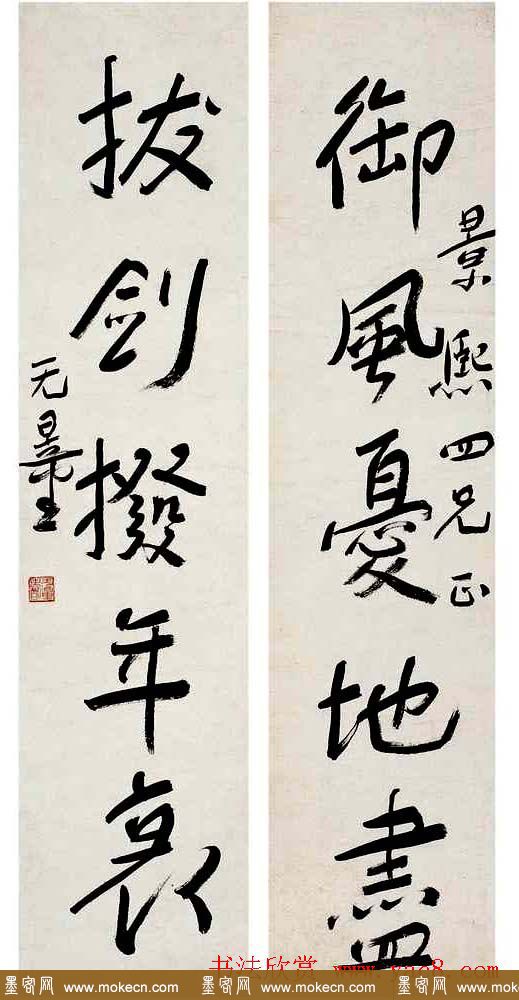 御風憂地盡
景熙四兄正
拔劍撥年衰
无量
书法欣赏 www.yac8.com
墨客网 www.mokecn.com 墨客网 www.mokecn.com 墨客网